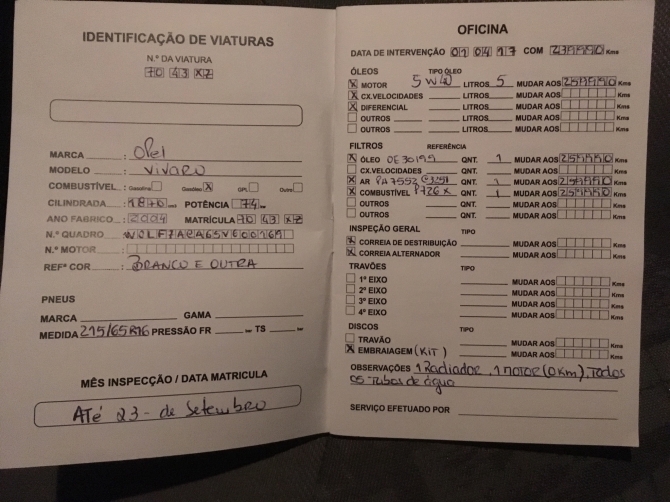 IDENTIFICAÇÃO DE VIATURAS
N.º DA VIATURA
70 43 XZ
MARCA : Opel
MODELO : VIVARO
COMBUSTÍVEL : Gasolina Gasóleo X GPL Outro
CILINDRADA : 1870 POTÊNCIA 74
ANO FABRICO : 2004 MATRÍCULA 70 43 XZ
N.º QUADRO
N.º MOTOR
REFª COR : BRANCO E OUTRA
PNEUS
MARCA GAMA
MEDIDA 215/65R16 PRESSÃO FR TS
MÊS INSPECÇÃO / DATA MATRICULA
ATÉ 23 - de Setembro
OFICINA
DATA DE INTERVENÇÃO 01 04 17 COM Kms
ÓLEOS TIPO ÓLEO
X MOTOR LITROS 5 MUDAR AOS Kms
X CX.VELOCIDADES LITROS MUDAR AOS Kms
X DIFERENCIAL LITROS MUDAR AOS Kms
OUTROS LITROS MUDAR AOS Kms
OUTROS LITROS MUDAR AOS Kms
FILTROS REFERÊNCIA
X ÓLEO QNT. 1 MUDAR AOS Kms
CX.VELOCIDADES QNT. MUDAR AOS Kms
X AR PA7552 QNT. 1 MUDAR AOS Kms
X COMBUSTÍVEL P726X QNT. 1 MUDAR AOS Kms
OUTROS QNT. MUDAR AOS Kms
OUTROS QNT. MUDAR AOS Kms
INSPEÇÃO GERAL TIPO
X CORREIA DE DESTRIBUIÇÃO MUDAR AOS Kms
X CORREIA ALTERNADOR MUDAR AOS Kms
TRAVÕES TIPO
1º EIXO MUDAR AOS Kms
2º EIXO MUDAR AOS Kms
3º EIXO MUDAR AOS Kms
4º EIXO MUDAR AOS Kms
DISCOS TIPO
TRAVÃO MUDAR AOS Kms
X EMBRAIAGEM (KIT) MUDAR AOS Kms
OBSERVAÇÕES 1 Radiador, 1 MOTOR (0 Km), Todos
os Tubos de água
SERVIÇO EFETUADO POR